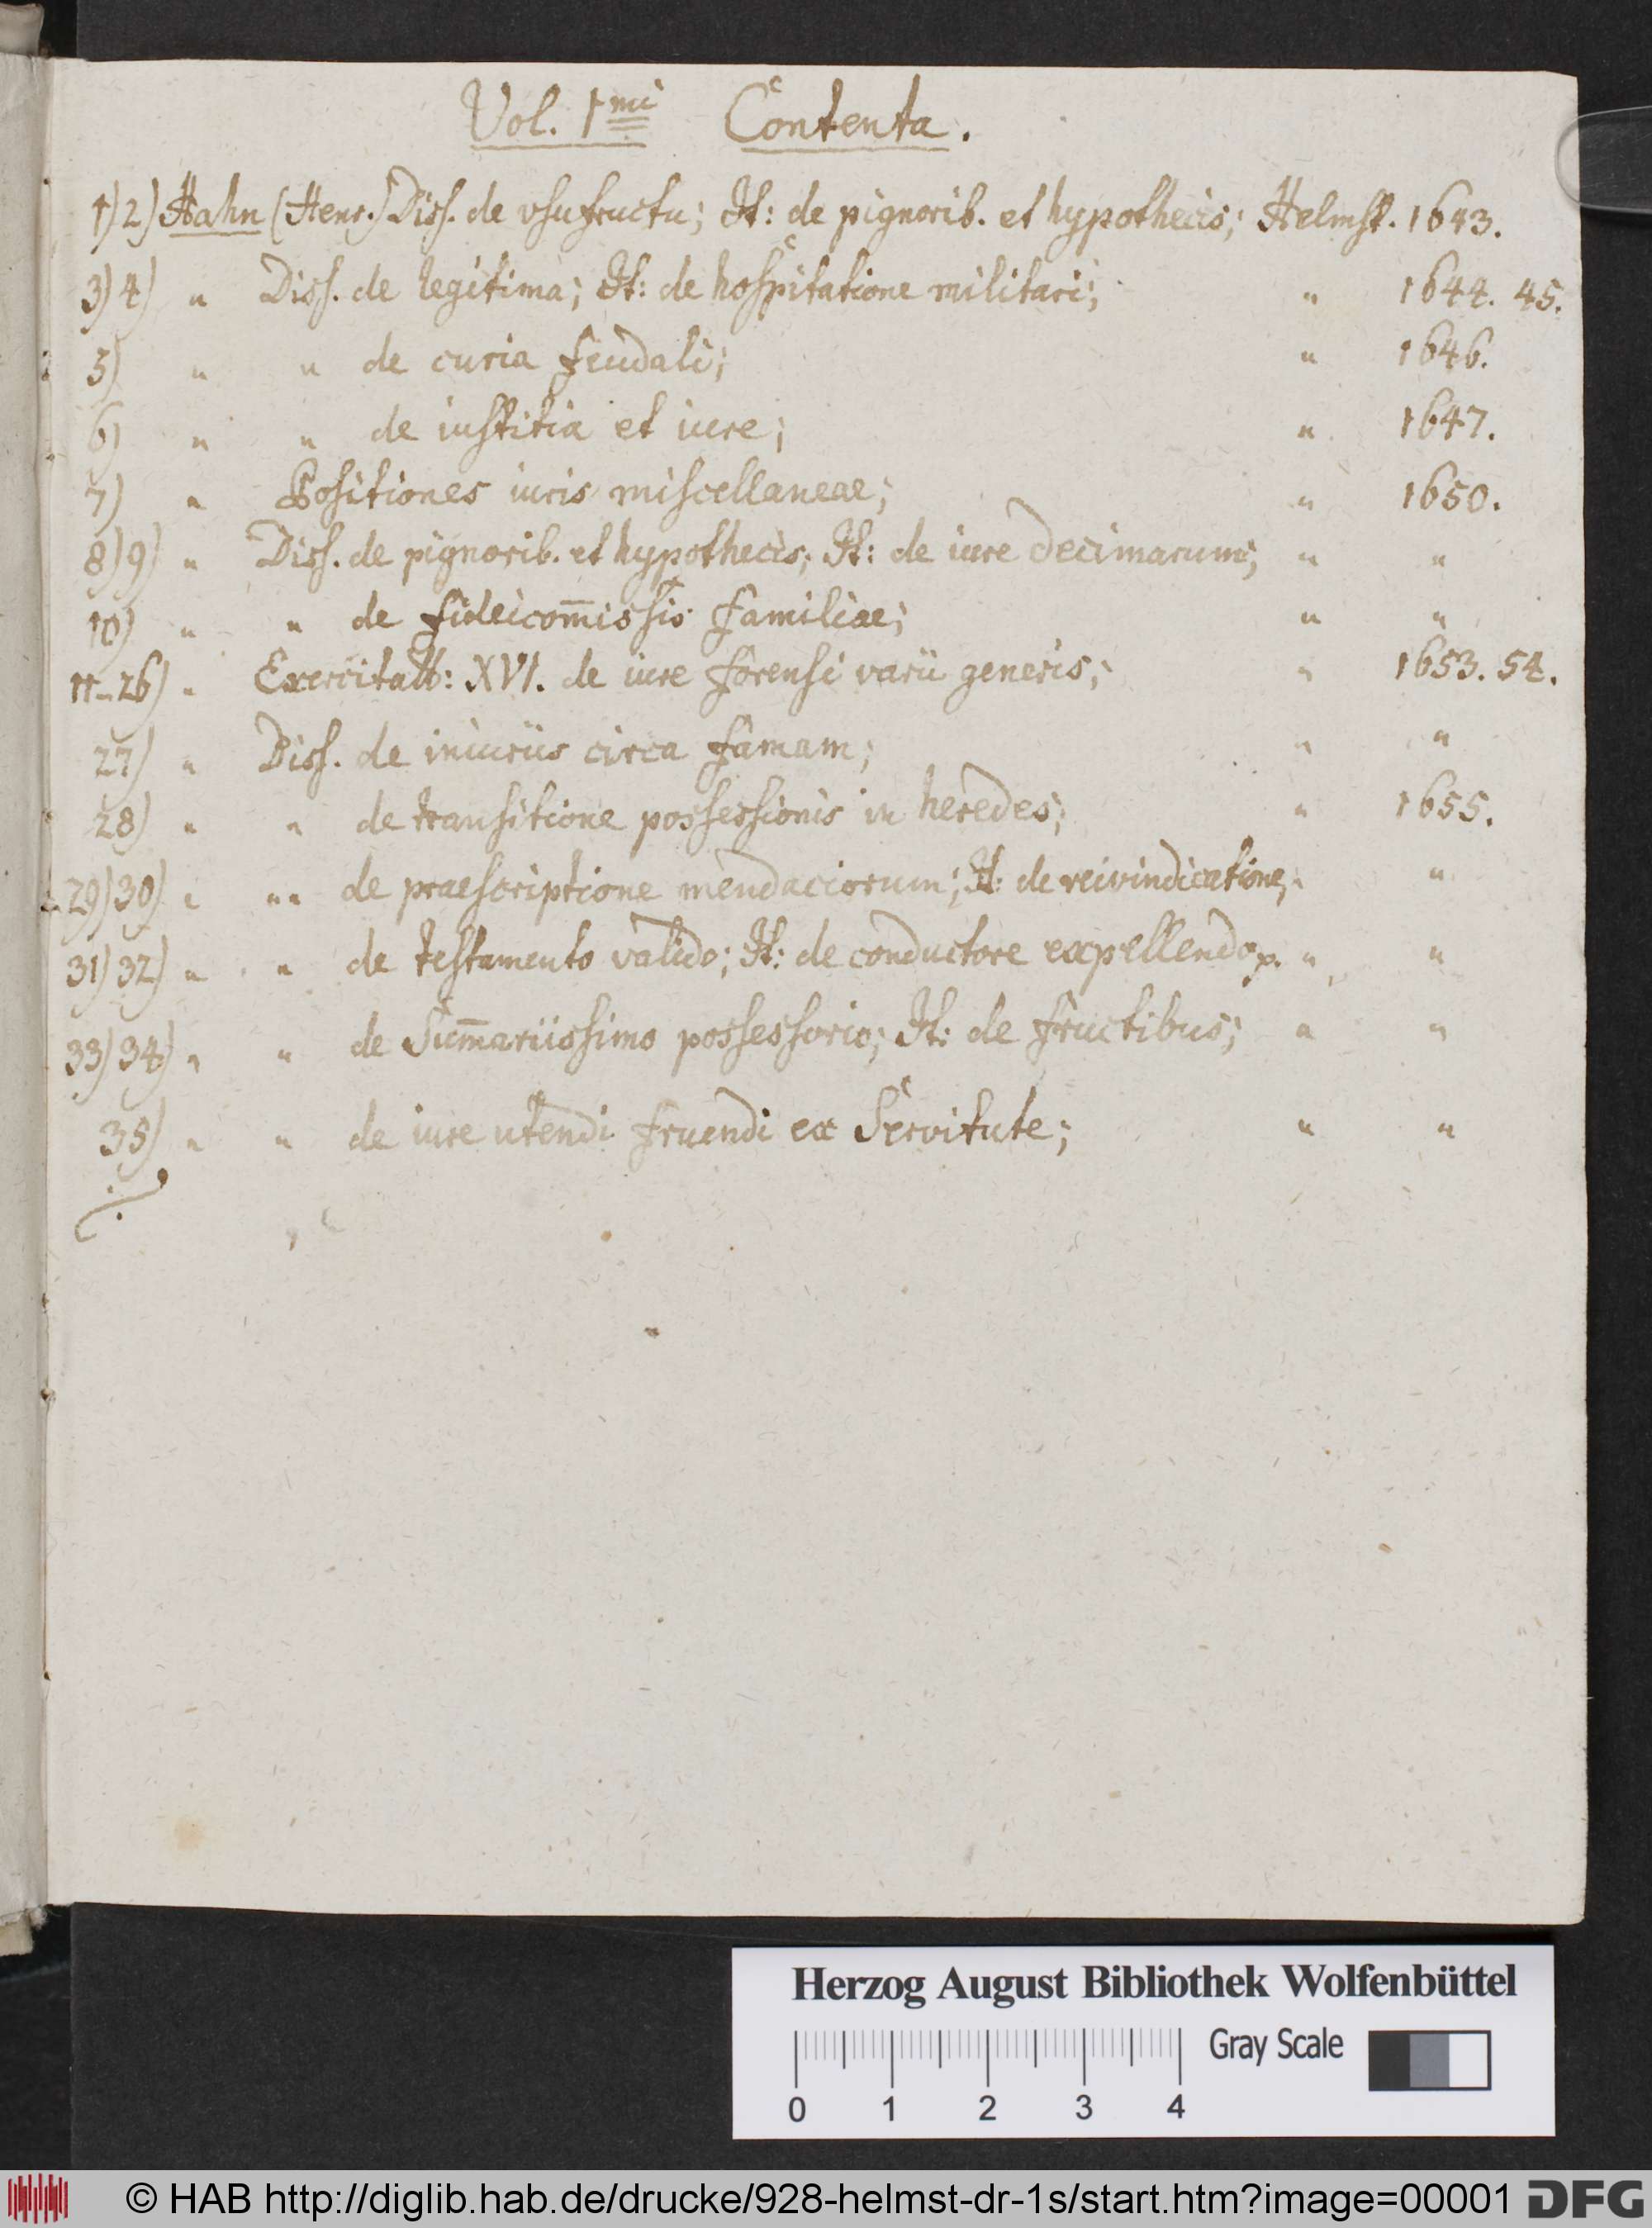 Vol. 1mi Contenta.
1) 2) Hahn (Henr.) Diss. de vsufructu; It: de pignorib. et hypothecis; Helmst. 1643.
3) 4) " Diss. de legitima; It: de hospitatione militari; " 1644. 45.
5) " " de curia feudali; " 1646.
6) " " de iustitia et iure; " 1647.
7) " Positiones iuris miscellaneae; " 1650.
8) 9) " Diss. de pignorib. et hypothecis; It: de iure decimarum; " "
10) " " de fideicom̄issis familiae; " "
11-26) " Exercitatt: XVI. de iure forensi varii generis; " 1653. 54.
27) " Diss. de iniuriis circa famam; " "
28) " " de transitione possessionis in heredes; " 1655.
29) 30) " " " de praescriptione mendaciorum; It: de reivindicatione; " "
31) 32) " " de testamento valido; It: de conductore expellendo p. " "
33) 34) " " de Sum̄ariissimo possessorio; It: de fructibus; " "
35) " " de iure utendi fruendi ex Servitute; " "
Herzog August Bibliothek Wolfenbüttel
Gray Scale
0 1 2 3 4
© HAB http://diglib.hab.de/drucke/928-helmst-dr-1s/start.htm?image=00001 DFG